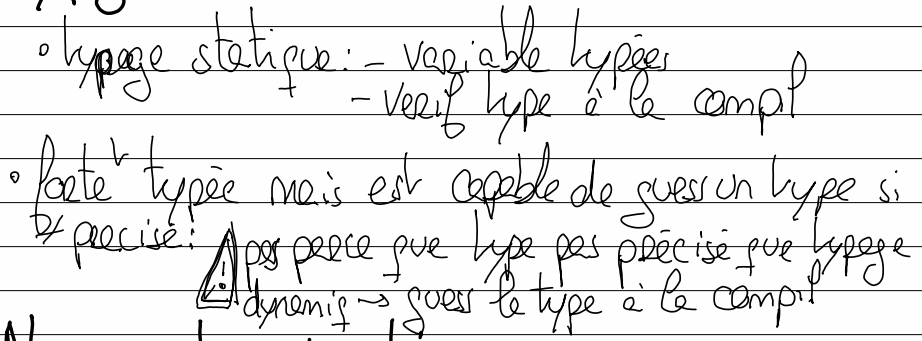 • typage statique: - variable typées
- verif type à la compil
• fortet typée mais est capable de guess un type si
précisé:
⚠ pas parce que type pas précisé que typage
dynamiq → guess le type à la compil